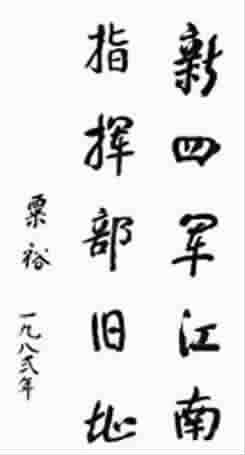 新四军江南
指挥部旧址
粟裕 一九八三年